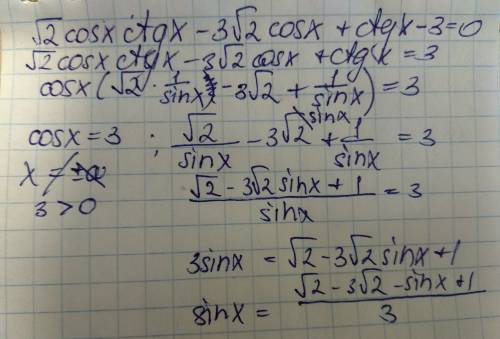 √2 cosx ctgx - 3√2 cosx + ctgx - 3 = 0
√2 cosx ctgx - 3√2 cosx + ctgx = 3
cosx (√2 · 1/sinx - 3√2 + 1/sinx) = 3
cosx = 3 ; √2/sinx - 3√2 + 1/sinx = 3
x =
3 > 0
(√2 - 3√2 sinx + 1)/sinx = 3
3sinx = √2 - 3√2 sinx + 1
sinx = (√2 - 3√2 - sinx + 1)/3